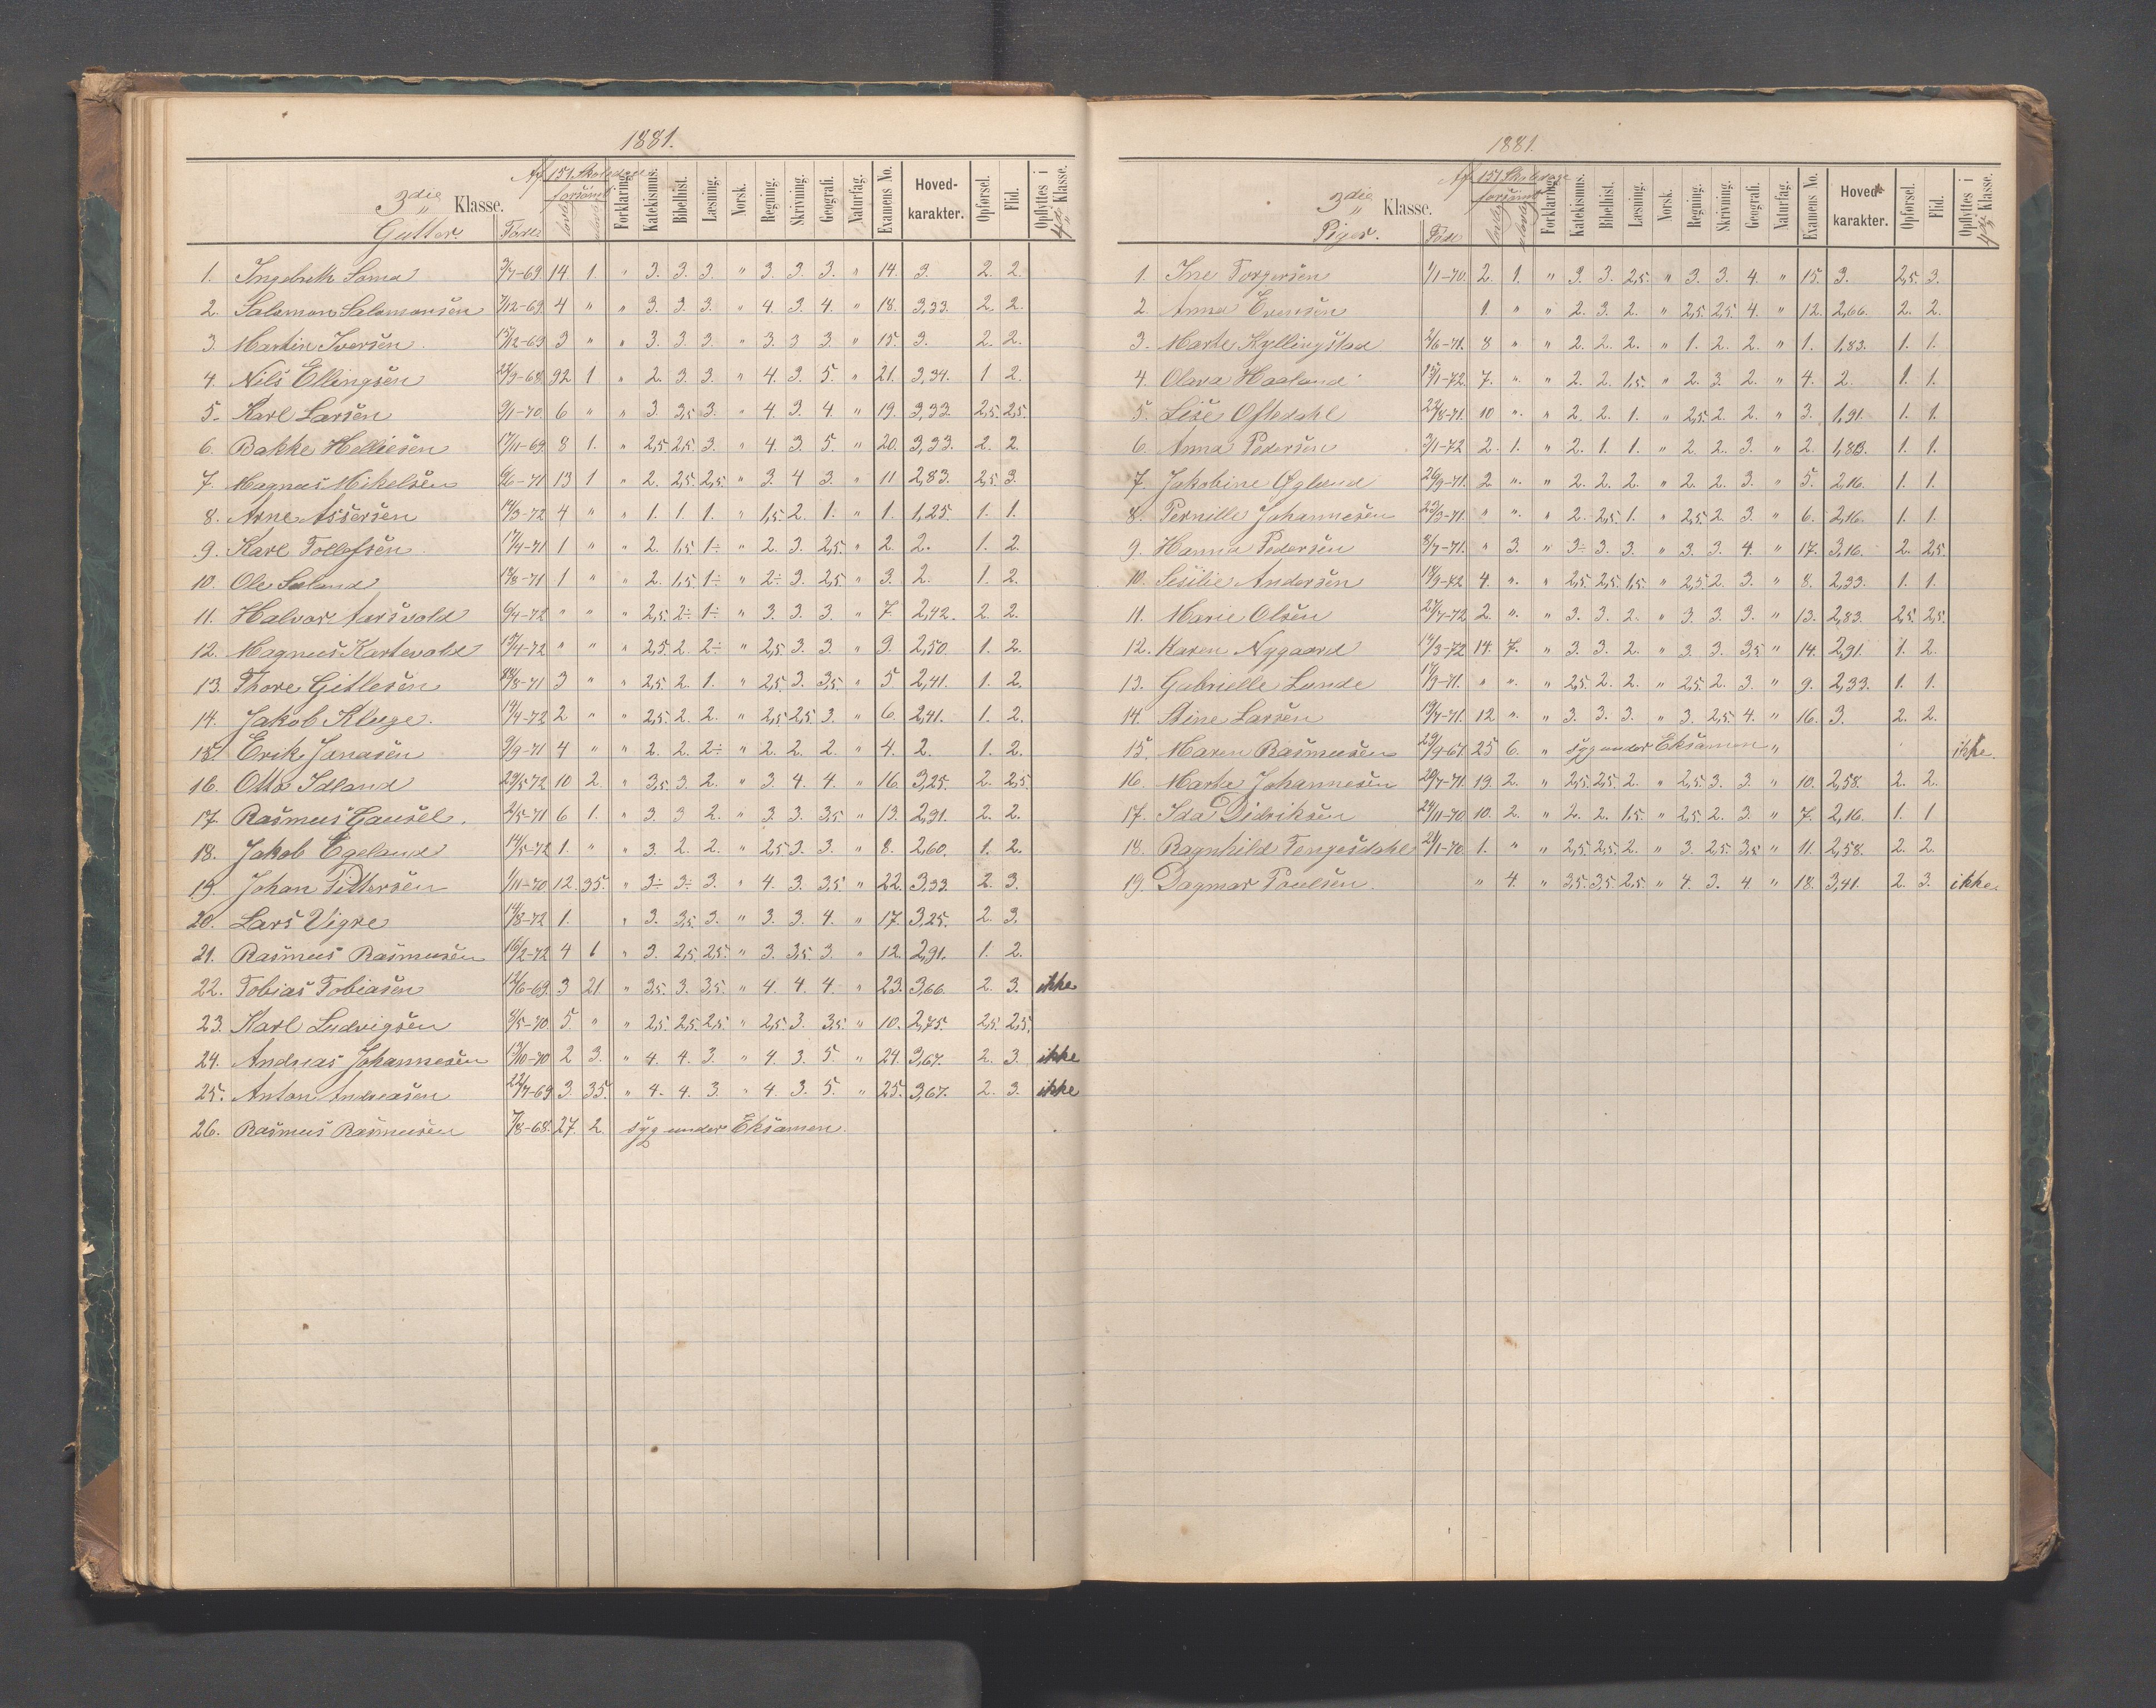 1881.
Af 151 Skoledage
forsømt
3die Klasse.
Gutter.
Født
Forklaring. Katekismus. Bibelhist. Læsning. Norsk. Regning. Skrivning. Geografi. Naturfag. Examens No. Hoved-karakter. Opførsel. Flid. Opflyttes i 4de Klasse.
1. Ingebreth Soma 3/7-69 14 1. " 3. 3. 3. " 3. 3. 3. " 14. 3. 2. 2.
2. Salamon Salamonsen 7/12-69 4 " " 3. 3. 3. " 4. 3. 4. " 18. 3,33. 2. 2.
3. Martin Iversen 15/12-69 3 " " 3. 3. 3. " 3. 3. 3. " 15. 3. 2. 2.
4. Nils Ellingsen 28/9-68 92 1 " 2. 3. 3. " 4. 3. 5. " 21. 3,34. 1 2.
5. Karl Larsen 9/1-70 6 " " 3. 3,5 3. " 4. 3. 4. " 19. 3,33. 2,5. 2,5.
6. Bakke Helliesen 17/11-69 8 1. " 2,5 2,5. 3. " 4. 3 5. " 20. 3,33. 2. 2.
7. Magnus Mikelsen 6/6-71 13 1 " 2. 2,5 2,5 " 3. 4 3. " 11 2,83. 2,5 3.
8. Arne Assersen 14/3-72 4 " " 1. 1. 1. " 1,5. 2. 1. " 1. 1,25. 1. 1.
9. Karl Tollefsen 17/4-71 1 " " 2. 1,5 1÷ " 2. 3. 2,5. " 2. 2. 1. 2.
10. Ole Sæland 13/8-71 1 " " 2. 1,5. 1÷ " 2÷ 3. 2,5 " 3. 2. 1. 2.
11. Halvor Aarsvold 6/4-72 " " " 2,5. 2÷ 1÷ " 3. 3. 3. " 7. 2,42. 2. 2.
12. Magnus Kartevold 15/4-72 " " " 2,5. 2. 2÷ " 2,5 3. 3. " 9. 2,50 1. 2.
13. Thore Gitlesen 28/8-71 3 " " 2,5. 2. 1. " 2,5. 3. 3,5 " 5 2,41. 1. 2.
14. Jakob Kluge. 14/4-72 2 " " 2,5. 2. 2. " 2,5 2,5 3. " 6. 2,41. 1. 2.
15. Erik Jonasen 9/9-71 4 " " 2. 2. 2÷ " 2. 2. 2. " 4. 2. 1. 2.
16. Otto Idland 29/5-72 10 2. " 3,5. 3. 2. " 3. 4. 4. " 16. 3,25. 2. 2,5.
17. Rasmus Gausel. 2/5-71 6 1. " 3. 3 2. " 3. 3. 3,5 " 13. 2,91. 2. 2.
18. Jakob Egeland 14/5-72 1. " " 3. 2. 2. " 2,5 3. 3. " 8. 2,60. 1. 2.
19. Johan Pettersen 1/11-70 12. 35. " 3÷ 3÷ 3. " 4. 3. 3,5 " 22. 3,33. 2. 3.
20. Lars Vigre 14/8-72 1. " 3. 3,5. 3. " 3. 3. 4. " 17. 3,25. 2. 3.
21. Rasmus Rasmusen 16/2-72 4 6 " 3. 2,5 2,5. " 3. 3,5. 3. " 12. 2,91. 1. 2.
22. Tobias Tobiasen 12/6-69. 3 21. " 3,5. 3. 3,5. " 4. 4. 4. " 23. 3,66. 2. 3. ikke
23. Karl Ludvigsen 8/5-70 5. " " 2,5. 2,5. 2,5. " 2,5. 3. 3,5. " 10. 2,75. 2,5. 2,5.
24. Andreas Johannesen 13/10-70 2 3. " 4. 4. 3. " 4. 3. 5. " 24. 3,67. 2. 3. ikke
25. Anton Andreasen 22/7-69 3. 35. " 4. 4. 3. " 4. 3. 5. " 25. 3,67. 2. 3. ikke
26. Rasmus Rasmusen 7/8-68. 27. 2. syg under Eksamen.
1881.
Af 151 Skoledage
forsømt
3die Klasse.
Piger.
Født
Forklaring. Katekismus. Bibelhist. Læsning. Norsk. Regning. Skrivning. Geografi. Naturfag. Examens No. Hoved-karakter. Opførsel. Flid. Opflyttes i 4de Klasse.
1. Ine Torgersen 1/1-70. 2. 1. " 3. 3. 2,5. " 3. 3. 4. " 15. 3. 2,5 3.
2. Anna Evensen 1. " " 2. 3. 2. " 2,5. 2,5. 4. " 12. 2,66. 2. 2.
3. Marte Kyllingstad 2/6-71. 8 " " 2. 2. 2. " 1. 2. 2. " 1. 1,83. 1. 1.
4. Olava Haaland 15/1-72. 7. " " 2. 2. 1,5. " 2. 3. 2. " 4. 2. 1. 1.
5. Lise Oftedahl 22/8-71. 10 " " 2. 2. 1. " 2,5. 2. 2. " 3. 1,91. 1. 1.
6. Anna Pedersen 3/1-72 2. 1. " 2. 1. 1. " 2. 2. 3. " 2. 1,83. 1. 1.
7. Jakobine Øglænd 26/9-71. 2. " " 2. 2. 2. " 2. 2. 3. " 5. 2,16. 1. 1.
8. Pernille Johannesen 23/3-71. " " " 2. 2,5. 1. " 2,5. 2. 3. " 6. 2,16. 1. 1.
9. Hanna Pedersen 8/7-71. " 3. " 3÷ 3. 3. " 3. 3. 4. " 17. 3,16. 2. 2,5.
10. Sesilie Andersen 18/9-72 4. " " 2,5. 2,5. 1,5. " 2,5. 2. 3. " 8. 2,33. 1. 1.
11. Marie Olsen 27/7-72 2. " " 3. 3. 2. " 3. 3. 3. " 13. 2,83. 2,5. 2,5.
12. Karen Nygaard 17/3-72 14. 7. " 3. 3. 2. " 3. 3. 3,5. " 14. 2,91. 1. 2.
13. Gabrielle Lunde 17/9-71. " " " 2,5. 2. 2. " 2,5. 2. 3. " 9. 2,33. 1. 1.
14. Stine Larsen 19/7-71. 12 " " 3. 3. 3. " 3. 2,5. 4. " 16. 3. 2. 2.
15. Maren Rasmusen 29/9-67. 25 6. " syg under Eksamen " ikke.
16. Marte Johannesen 20/7-71. 19. 2. " 2,5. 2,5. 2. " 2,5. 3. 3. " 10. 2,58. 2. 2.
17. Ida Didriksen 24/11-70 10. 2. " 2. 2. 1,5. " 2,5. 2. 3. " 7. 2,16. 1. 1
18. Ragnhild Tengesdahl 21/1-70. 1. " " 2,5. 2,5. 2. " 3. 2,5. 3,5 " 11. 2,58. 2. 2.
19. Dagmar Poulsen. " 4. " 3,5. 3,5. 2,5. " 4. 3. 4. " 18. 3,41. 2. 3. ikke.